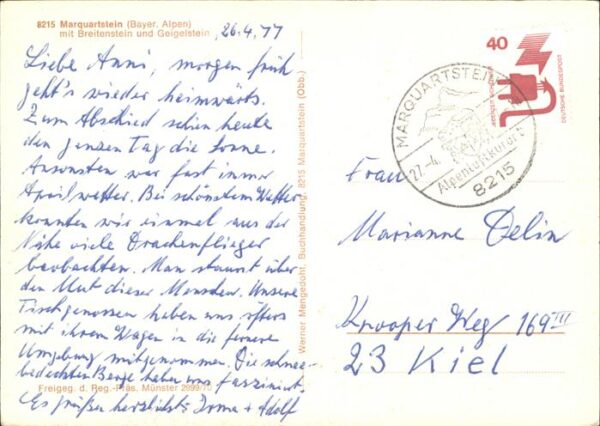 8215 Marquartstein (Bayer. Alpen)
mit Breitenstein und Geigelstein
26.4.77
Liebe Anni, morgen früh
geht's wieder heimwärts.
Zum Abschied schien heute
den ganzen Tag die Sonne.
Ansonsten war fast immer
Aprilwetter. Bei schönstem Wetter
konnten wir einmal aus der
Nähe viele Drachenflieger
beobachten. Man staunt über
den Mut dieser Menschen. Unsere
Tischgenossen haben uns öfters
mit ihrem Wagen in die fernere
Umgebung mitgenommen. Die schnee-
bedeckten Berge haben uns fasziniert.
Es grüßen herzlichst Irma + Adolf
Freigeg. d. Reg.-Präs. Münster 2999/70
Werner Mengedoht, Buchhandlung, 8215 Marquartstein (Obb.)
40
DEUTSCHE BUNDESPOST
MARQUARTSTEIN
27.-4.
Alpenluftkurort
8215
Frau
Marianne Delin
Knooper Weg 169 III
23 Kiel